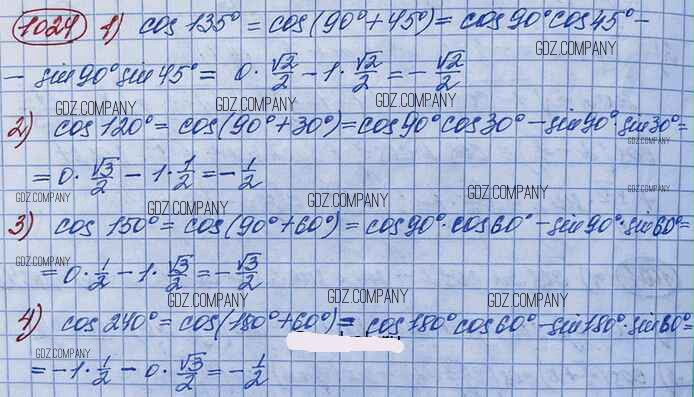 1024 1) cos 135° = cos(90° + 45°) = cos 90° cos 45° -
GDZ.COMPANY
- sin 90° sin 45° = 0 · √2/2 - 1 · √2/2 = - √2/2
GDZ.COMPANY GDZ.COMPANY GDZ.COMPANY
2) cos 120° = cos(90° + 30°) = cos 90° cos 30° - sin 90° · sin 30° =
GDZ.COMPANY
= 0 · √3/2 - 1 · 1/2 = - 1/2
GDZ.COMPANY GDZ.COMPANY GDZ.COMPANY GDZ.COMPANY GDZ.COMPANY
3) cos 150° = cos(90° + 60°) = cos 90° · cos 60° - sin 90° · sin 60° =
GDZ.COMPANY
= 0 · 1/2 - 1 · √3/2 = - √3/2
GDZ.COMPANY GDZ.COMPANY GDZ.COMPANY
4) cos 240° = cos(180° + 60°) = cos 180° cos 60° - sin 180° · sin 60° =
GDZ.COMPANY
= -1 · 1/2 - 0 · √3/2 = - 1/2